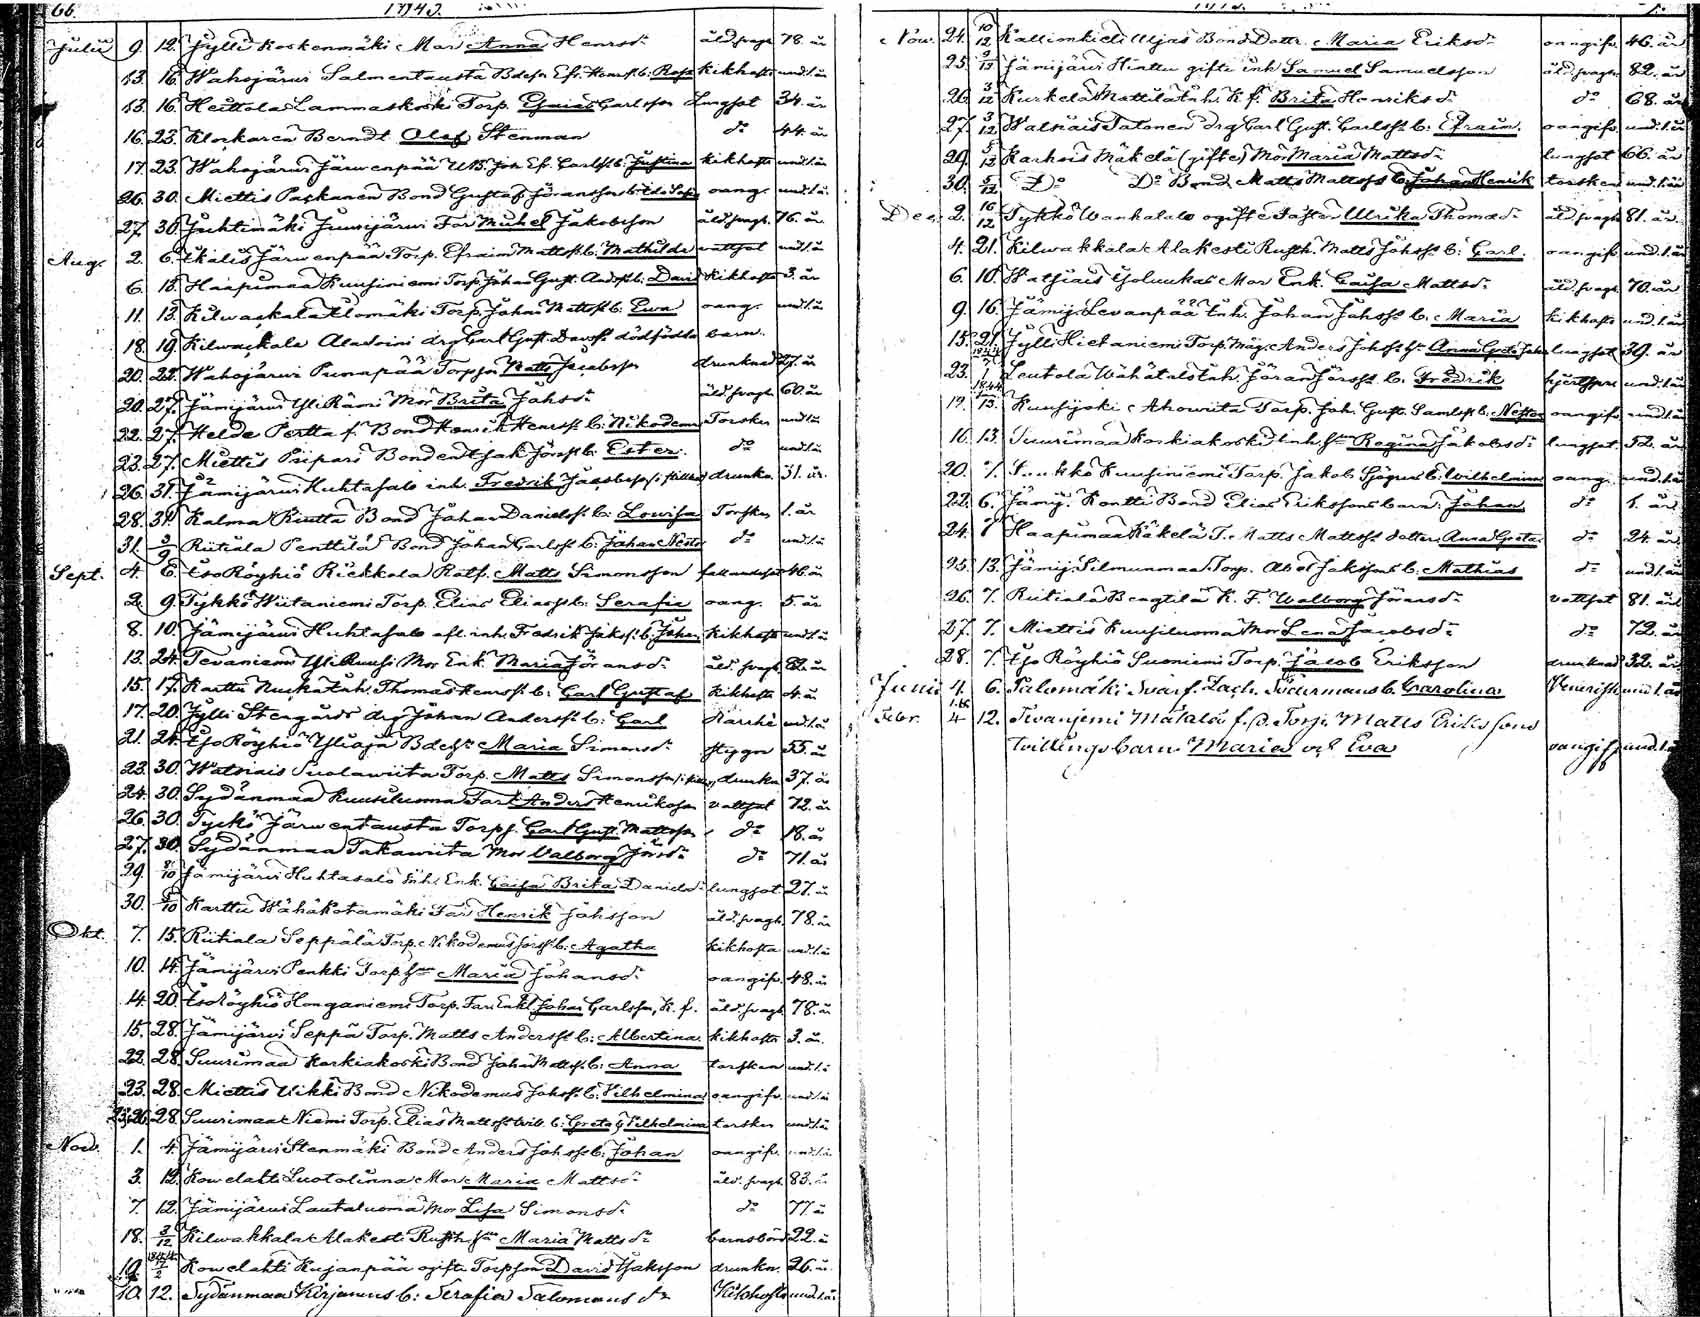 66. 1843.
Julii 9. 12. Jylli Koskenmäki Mor Anna Henrsdr åld.svagh. 78. år
13. 16. Wahojärwi Salmentausta kikhosta und. 1. år
13. 16. Heittola Lammaskoski Torp. Carlsson Lungsot 34. år
16. 23. Klockaren Berndt Olof Stenman do 44. år
17. 23. Wahojärwi Järwenpää Justina kikhosta und. 1. år
26. 30. Miettis Paskanen Bond Gustaf Göransson oang. und. 1. år
27. 30. Juhtimäki Juusijärwi Far Mickel Jakobsson åld.svagh. 76. år
Aug. 2. 6. Ikalis Järwenpää Torp. Efraim Mattss. b. Mathilda vattsot und. 1. år
6. 13. Haapimaa Kuusiniemi Torp. Johan Gust. Andss. b. David kikhosta 3. år
11. 13. Kilwackala Ulomäki Torp. Johan Mattss. b. Ewa oang. und. 1. år
18. 19. Kilwackala Aladoini drg Carl Gust. Davss. dödfödda barn.
20. 22. Wahojärwi Punapää Torpson Matts Jacobsson drunknad 27. år
20. 27. Jämijärwi Yli Rämi Mor Brita Johsdr åld.svagh. 60. år
22. 27. Helde Pertta f. Bond Henrik Henrss. b. Nikodemus Torsken und. 1. år
23. 27. Miettis Piipari Bonden Isak Jörss. b. Ester. do und. 1. år
26. 31. Jämijärwi Huhtasalo inh. Fredrik Jacobsson drunkn. 31. år.
28. 31. Kalma Riutta Bond Johan Danielss. b. Lowisa Torsken 1. år
31. 3/9 Riitiala Penttilä Bond Johan Carlss. b. Johan Nestor do und. 1. år
Sept. 4. 6. Eso Röyhiö Rickkola Rotf. Matts Simonsson fallandesot 46. år
2. 9. Tykkö Wiitaniemi Torp. Elias Eliass. b. Serafia oang. 5. år
8. 10. Jämijärwi Huhtasalo afl. inh. Fredrik Jakss. b. Johan kikhosta und. 1. år
13. 24. Tevaniemi Yli Ruusi Mor Enk. Maria Göransdr åld.svagh. 82. år
15. 17. Karttu Nuckа Inh. Thomas Henrss. b. Carl Gustaf kikhosta 4. år
17. 20. Jylli Stengårds drg Johan Anderss. b. Carl und. 1. år
21. 24. Eso Röyhiö Yliaja Bdehu Maria Simonsdr styggn 55. år
23. 30. Watsiais Suolawiita Torp. Matts Simonsson drunkn. 37. år
24. 30. Sydänmaa Kuusiluoma Far Anders Henriksson vattsot 72. år
26. 30. Tyckö Järwentausta Torps. Carl Gust. Mattsson do 18. år
27. 30. Sydänmaa Takawiita Mor Valborg Jörsdr do 71. år
29. 8/10 Jämijärwi Huhtasalo Inh. Enk. Caisa Brita Danielsdr lungsot 27. år
30. 8/10 Karttu Wähäkotamäki Far Henrik Johsson åld.svagh. 78. år
Okt. 7. 15. Riitiala Seppälä Torp. Nikodemus Jörss. b. Agatha kikhosta und. 1. år
10. 14. Jämijärwi Penkki Torp. hu Maria Johansdr oangifv. 48. år
14. 20. Eso Röyhiö Honganiemi Torp. Far Enkl. Johan Carlsson, K. f. åld.svagh. 78. år
15. 28. Jämijärwi Seppä Torp. Matts Anderss. b. Albertina kikhosta 3. år.
22. 28. Suurimaa Karkiakoski Bond Johan Mattss. b. Anna torsken und. 1.
23. 28. Miettis Uikki Bond Nikodemus Johss. b. Vilhelmina oangifv. und. 1. år
23, 26. 28. Suurimaa Niemi Torp. Elias Mattss. twil. b. Greta & Vilhelmina torsken und. 1. år
Nov. 1. 4. Jämijärwi Stenmäki Bond Anders Johss. b. Johan oangifv. und. 1. år
3. 12. Kowelahti Luotolinna Mor Maria Mattsdr åld. svagh. 83. år
7. 12. Jämijärwi Lautaluoma Mor Lisa Simonsdr do 77 år
18. 3/12 Kilwakkala Alakesti Rusth. hu Maria Mattsdr barnsbörd 22. år
19. Kowelahti Kujanpää ogift Torpson David Isaksson drunkn. 26. år.
10. 12. Sydänmaa Kirjanus b. Serafia Salomonsdr Kikhosta und. 1. år
Nov. 24. 10/12 Kallionkieli Uljas Bond Dottr. Maria Eriksdr oangifv. 46. år
25. 3/12 Jämijärwi Hinttu gifte inh Samuel Samuelsson åld.svagh. 82. år
26. 3/12 Kurkela Mattila Inh. K. f. Brita Henriksdr do 68. år
27. 3/12 Watsiais Tatonen drg Carl Gust. Carlss. b. Efraim. oangifv. und. 1. år
29. 5/12 Karhois Mäkelä (gifte) Mor Maria Mattsdr lungsot 66. år
30. 5/12 Do Do Bond. Matts Mattss. b. Johan Henrik torsken und. 1. år
Dec. 2. 16/12 Tykkö Wanhatalo ogifte Syster Ulrika Thomasdr åld svagh. 81. år.
4. 21. Kilwakkala Alakesti Rusth. Matts Johss. b. Carl. oangifv. und. 1. år
6. 10. Watsiais Mor Enk. Caisa Mattsdr åld. svagh. 70. år
9. 16. Jämij. Levanpää Inh. Johan Johss. b. Maria kikhosta und. 1. år
15. 21. Jylli Hietaniemi Torp. Måg Anders Johss. hu Anna Greta lungsot 39. år
23. 1844 Leutola Wähätalo Inh. Jöran Jörss. b. Fredrik und. 1. år
12. 13. Kuusijoki Ahowiita Torp. Joh. Gust. Samlss. b. Nestor oangifv. und. 1. år
16. 13. Suurimaa Koskiakoski Inh. hu Regina Jakobsdr lungsot. 52. år
20. 7. Kuusiniemi Torp. Jakob Sjögrens b. Wilhelmina oang. und. 1. år
22. 6. Jämij. Kontti Bond Elias Erikssons barn: Johan do 1. år
24. 7 Haapimaa Käkelä T. Matts Mattss. dotter Anna Greta do 24. år
25. 13. Jämij. Silmunmaa Torp. Abel Jakssons b. Mathias do und. 1. år
26. 7. Riitiala Bengtilä K. F. Walborg Jöransdr vattsot 81. år
27. 7. Miettis Kuusiluoma Mor Lena Jacobsdr do 72. år
28. 7. Eso Röyhiö Susniemi Torp. Jacob Eriksson drunknad 32. år
Junii 4. 6. Palomäki Svarf. Zach. Svärmans b. Carolina Venerisk und. 1. år
Febr. 4 12. Tevanjemi Mätälä f. d. Torp. Matts Erikssons
Twillings barn Maria och Eva oangif und. 1. år